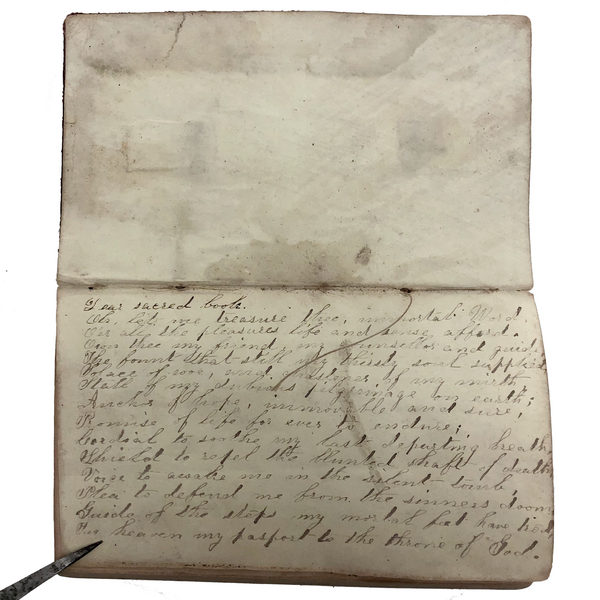 Dear sacred book.
Oh, let me treasure thee, immortal Word
O'er all the pleasures life and sense afford.
Own thee my friend, my counsellor and guide
The fount that still my thirsty soul supplies
Solace of woe, and of my mirth,
State of my dubious pilgrimage on earth;
Anchor of hope, immovable and sure,
Promise of life for ever to endure;
Cordial to soothe my last departing breath,
Shield to repel the blunted shaft of death
Voice to awake me in the silent tomb,
Plea to defend me from the sinners doom
Guide of the steps my mortal feet have trod,
heaven my pasport to the throne of God.